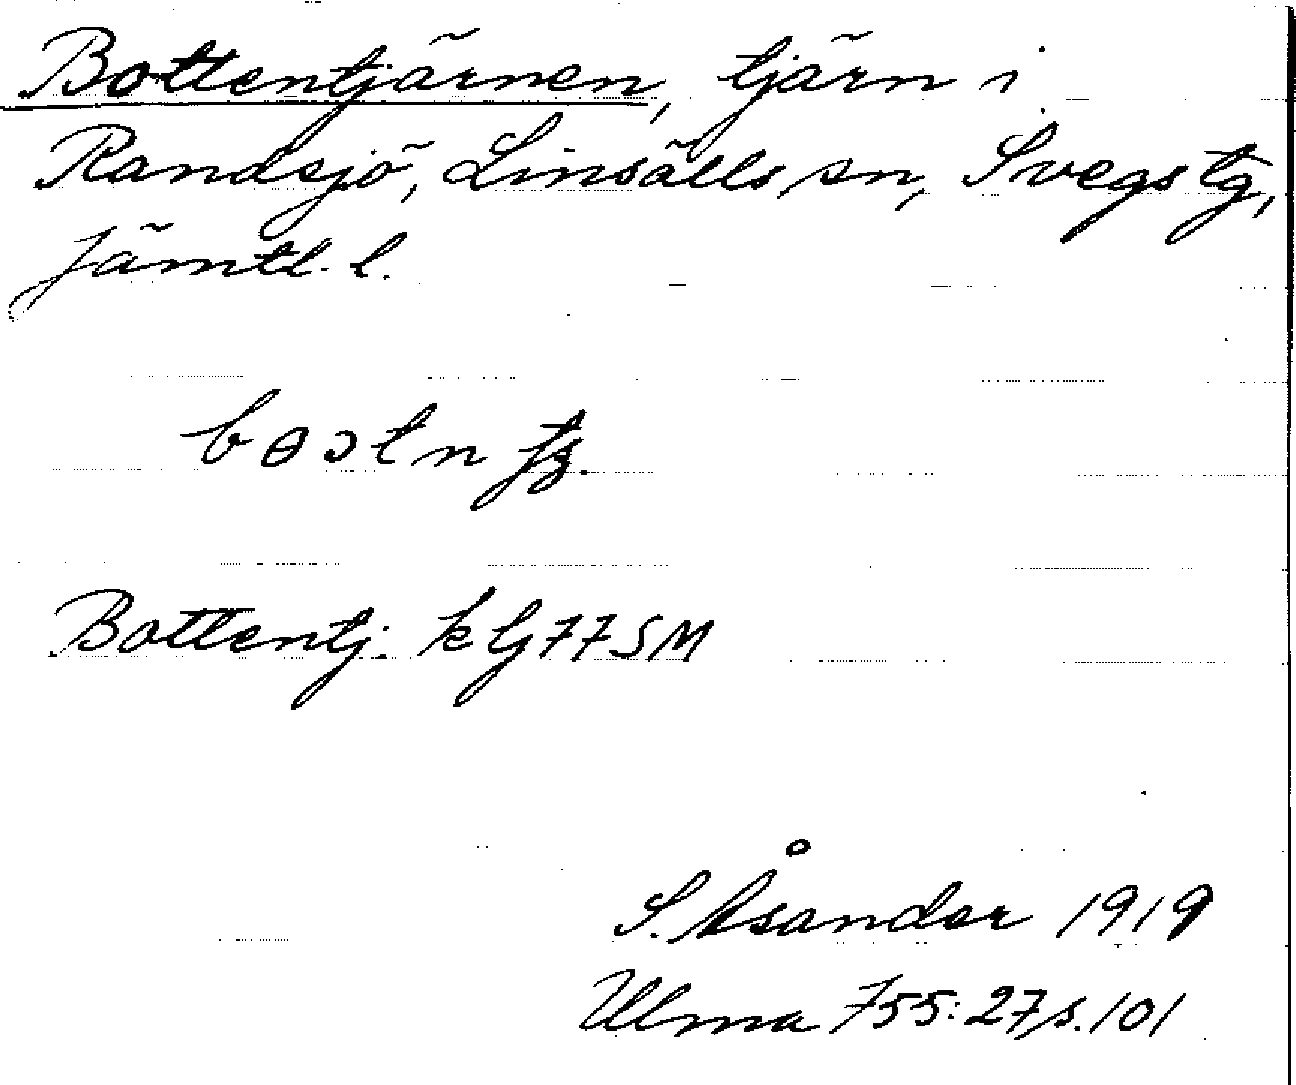 Bottentjärnen, tjärn i
Randsjö, Linsälls sn, Svegs tg,
Jämtl. l.
Bottentj. k tj 77 SM
S. Åsander 1919
Ulma 755:27, s. 101